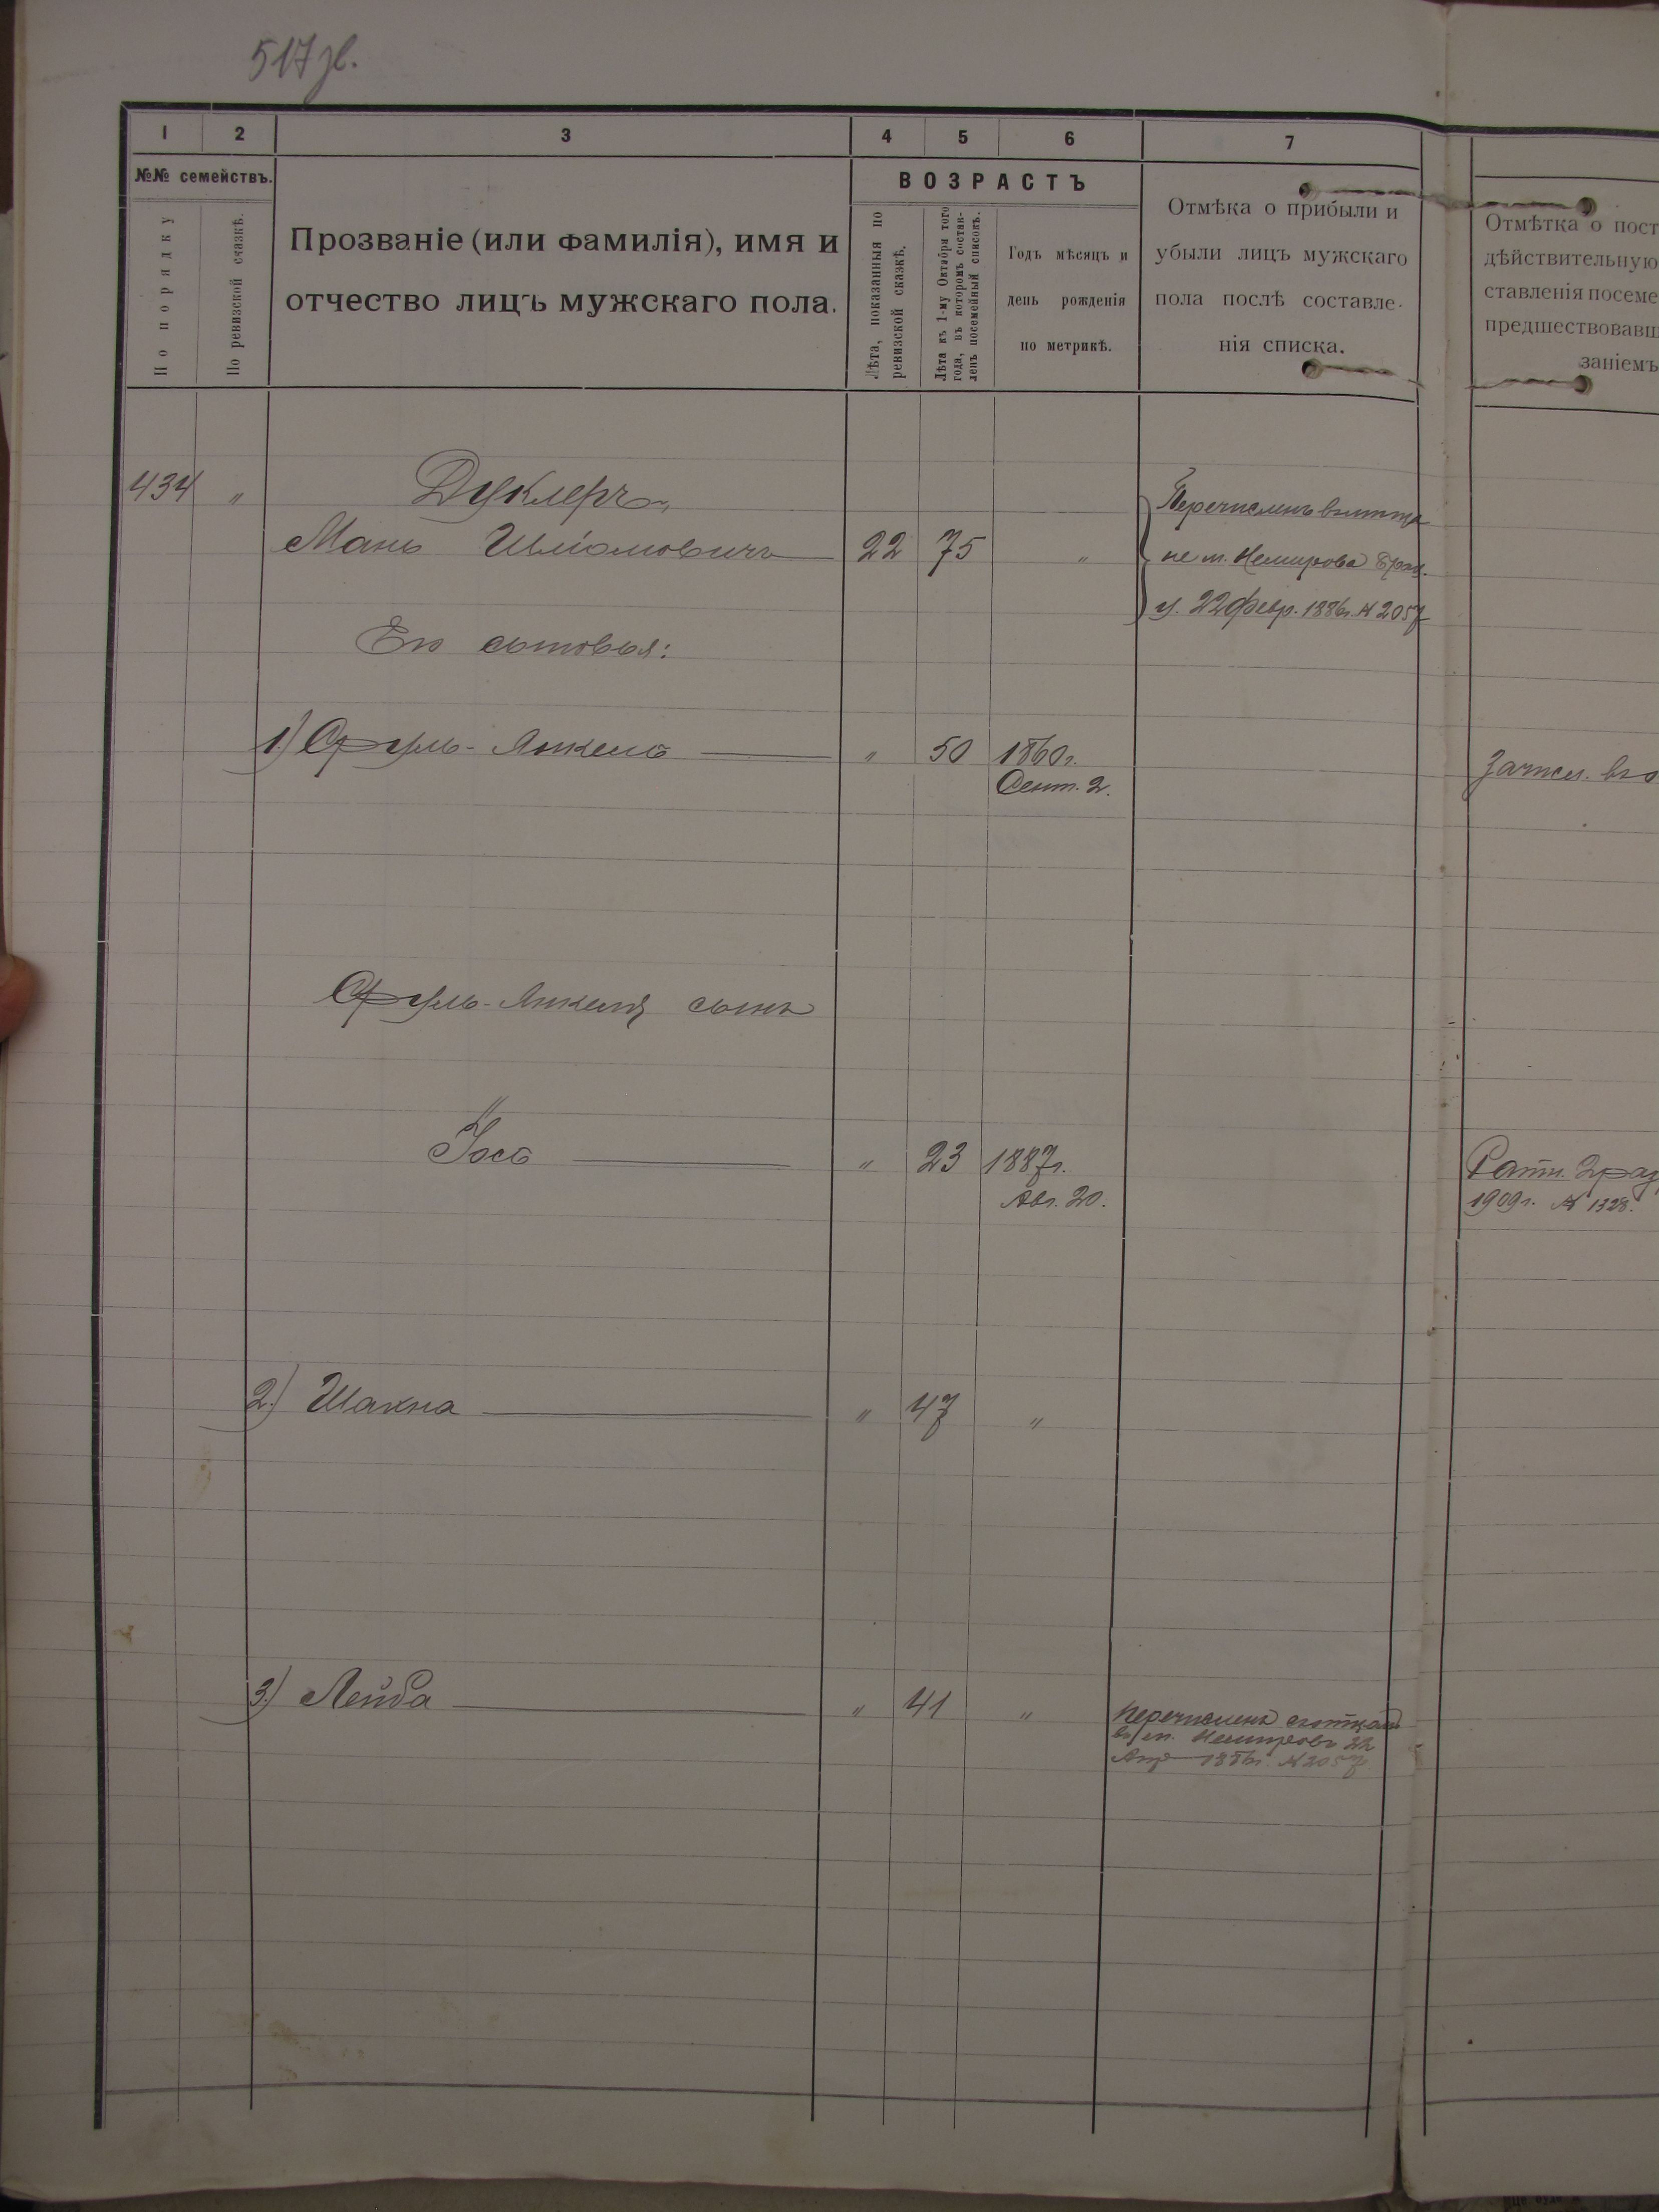 517 зв.
1 2 3 4 5 6 7
№№ семействъ.
По порядку
По ревизской сказкѣ.
Прозваніе (или фамилія), имя и
отчество лицъ мужскаго пола.
ВОЗРАСТЪ
Лѣта, показанныя по
ревизской сказкѣ.
Лѣта къ 1-му Октября того
года, въ которомъ состав-
ленъ посемейный списокъ.
Годъ мѣсяцъ и
день рожденія
по метрикѣ.
Отмѣка о прибыли и
убыли лицъ мужскаго
пола послѣ составле-
нія списка.
Отмѣтка о пост
дѣйствительную
ставленія посеме
предшествовавш
заніемъ
434 "
Дуклеръ
Мань Шліомовичъ 22 75 "
Перечисленъ
не м. Немирова Брац.
у. 22 февр. 1886г. № 2057
Его сыновья:
1) Сруль-Янкель " 50 1860г.
Сент. 2.
Зачисл. въ
Сруль-Янкеля сынъ
Іось " 23 1887г.
Авг. 20.
Ратн. 2 раз
1909г. № 1328.
2) Шахна " 47 "
3) Лейба " 41 "
Перечисленъ
въ м. Немировъ 22
1886г. № 2057